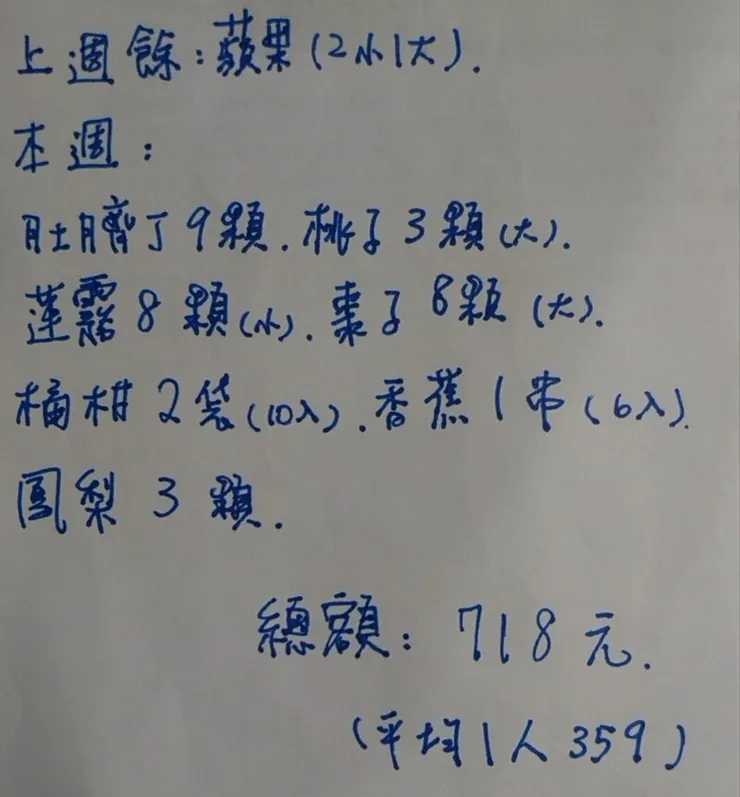 上週餘:蘋果(2小1大).
本週:
肚臍丁9顆.桃子3顆(大).
蓮霧8顆(小).棗子8顆(大).
橘柑2袋(10入).香蕉1串(6入).
鳳梨3顆.
總額:718元.
(平均1人359)